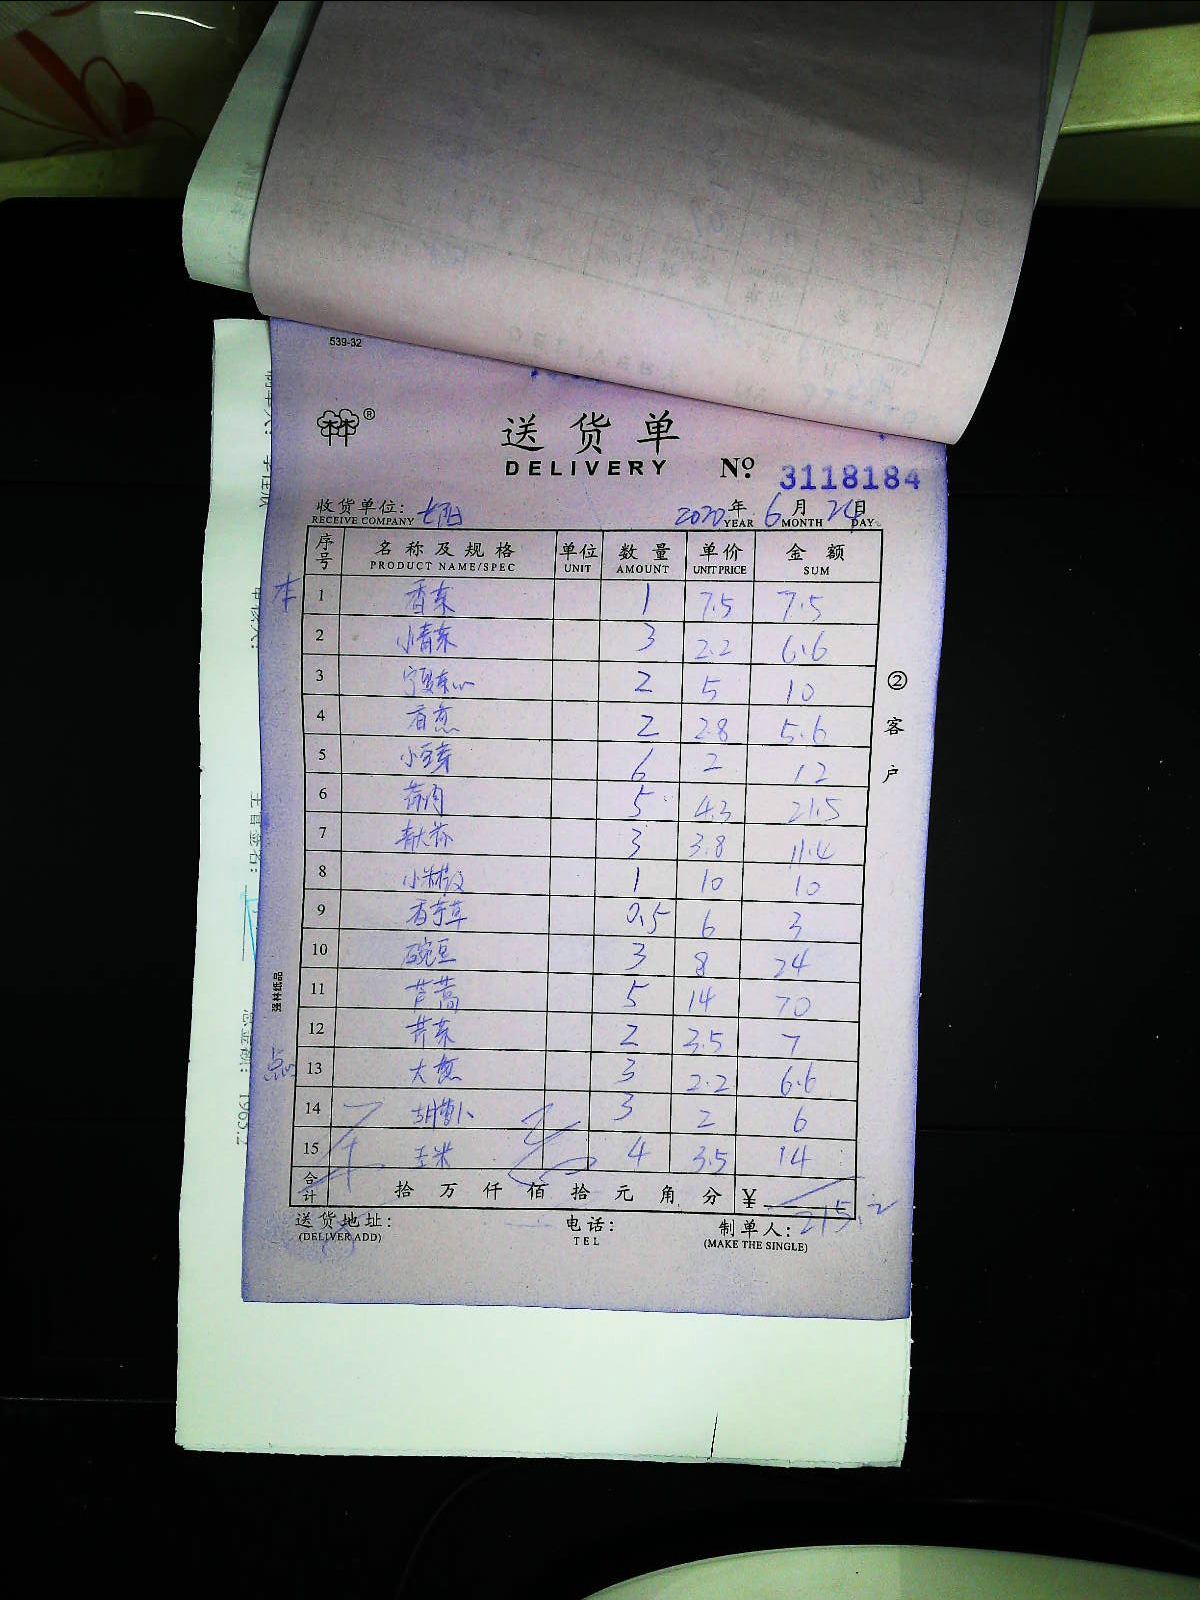 539-32
林®
送货单
DELIVERY № 3118184
收货单位: 七阳 2020年 6月 24日
RECEIVE COMPANY YEAR MONTH DAY
序号 名称及规格 单位 数量 单价 金额
PRODUCT NAME/SPEC UNIT AMOUNT UNIT PRICE SUM
本 1 香菜 1 7.5 7.5
2 小青菜 3 2.2 6.6
3 2 5 10
4 香葱 2 2.8 5.6
5 小豆芽 6 2 12
6 5 4.3 21.5
7 3 3.8 11.4
8 小米椒 1 10 10
9 香茅草 0.5 6 3
10 豌豆 3 8 24
11 芦蒿 5 14 70
12 芹菜 2 3.5 7
点心 13 大葱 3 2.2 6.6
14 胡萝卜 3 2 6
15 玉米 4 3.5 14
合计 拾 万 仟 佰 拾 元 角 分 ¥ 215.2
送货地址: 电话: 制单人:
(DELIVER ADD) TEL (MAKE THE SINGLE)
②客户
强林纸品
主管签名:
总金额: 1963.2